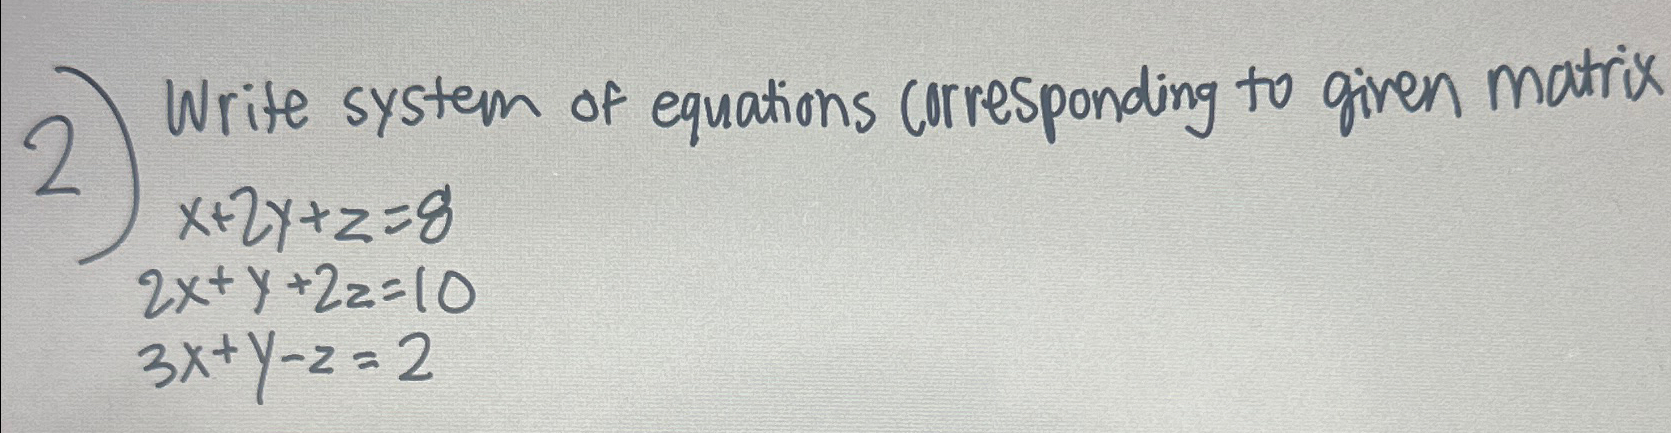 2) Write system of equations corresponding to given matrix
x+2y+z=8
2x+y+2z=10
3x+y-z=2